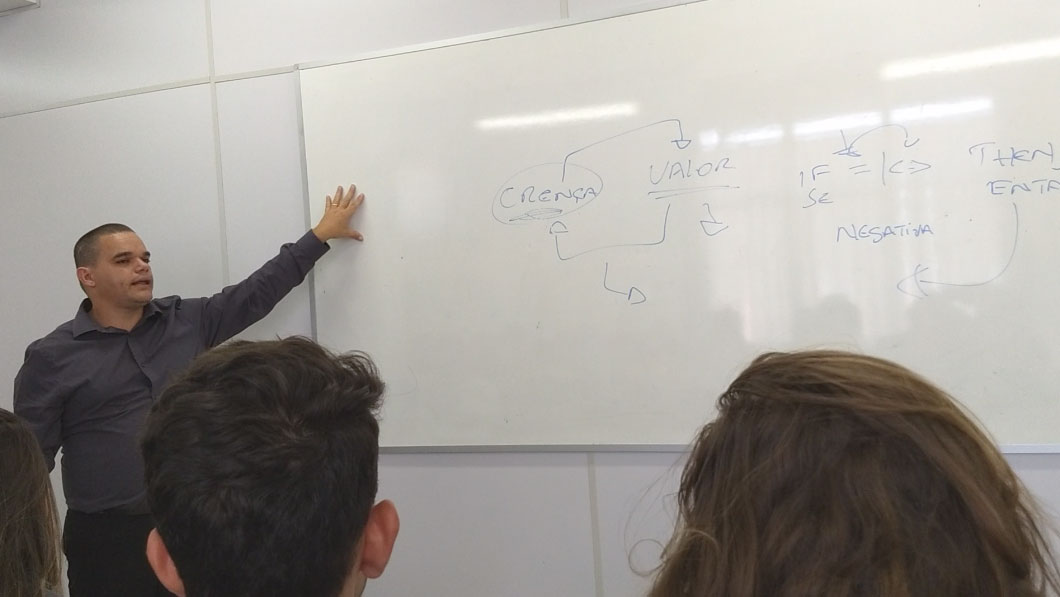 CRENÇA
VALOR
IF = | <>
SE
THEN
ENTA
NEGATIVA